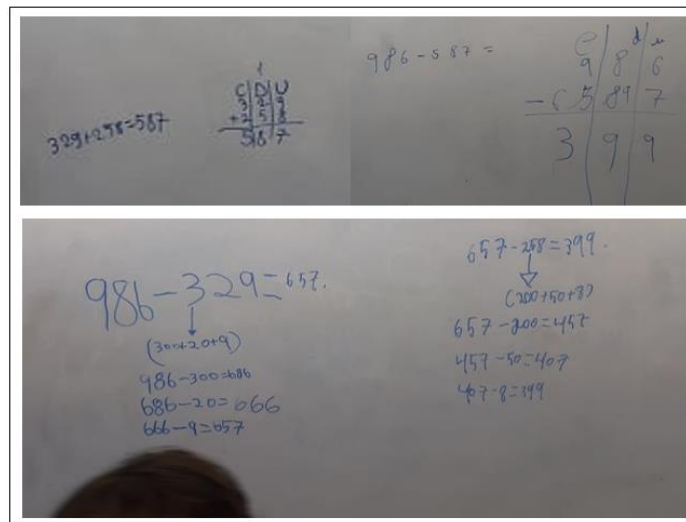 329+258=587
1
C D U
3 2 9
+2 5 8
5 8 7
986-587=
c d u
9 8 6
- 5 8 7
3 9 9
986-329=657.
(300+20+9)
986-300=686
686-20=666
666-9=657
657-258=399.
(200+50+8)
657-200=457
457-50=407
407-8=399